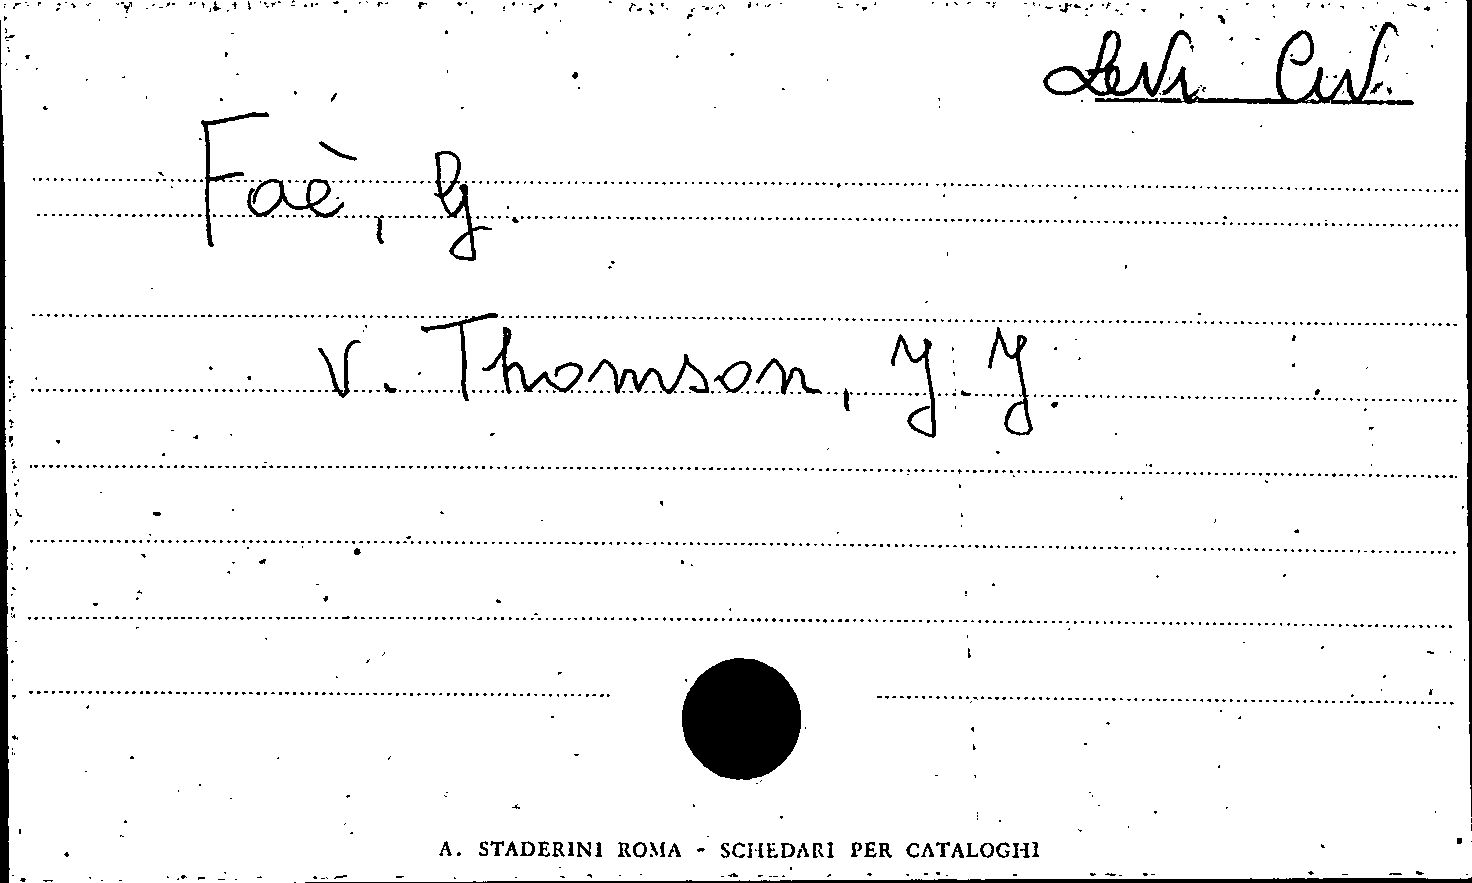 Levi Civ.
Faè, G.
v. Thomson, J. J.
A. STADERINI ROMA - SCHEDARI PER CATALOGHI